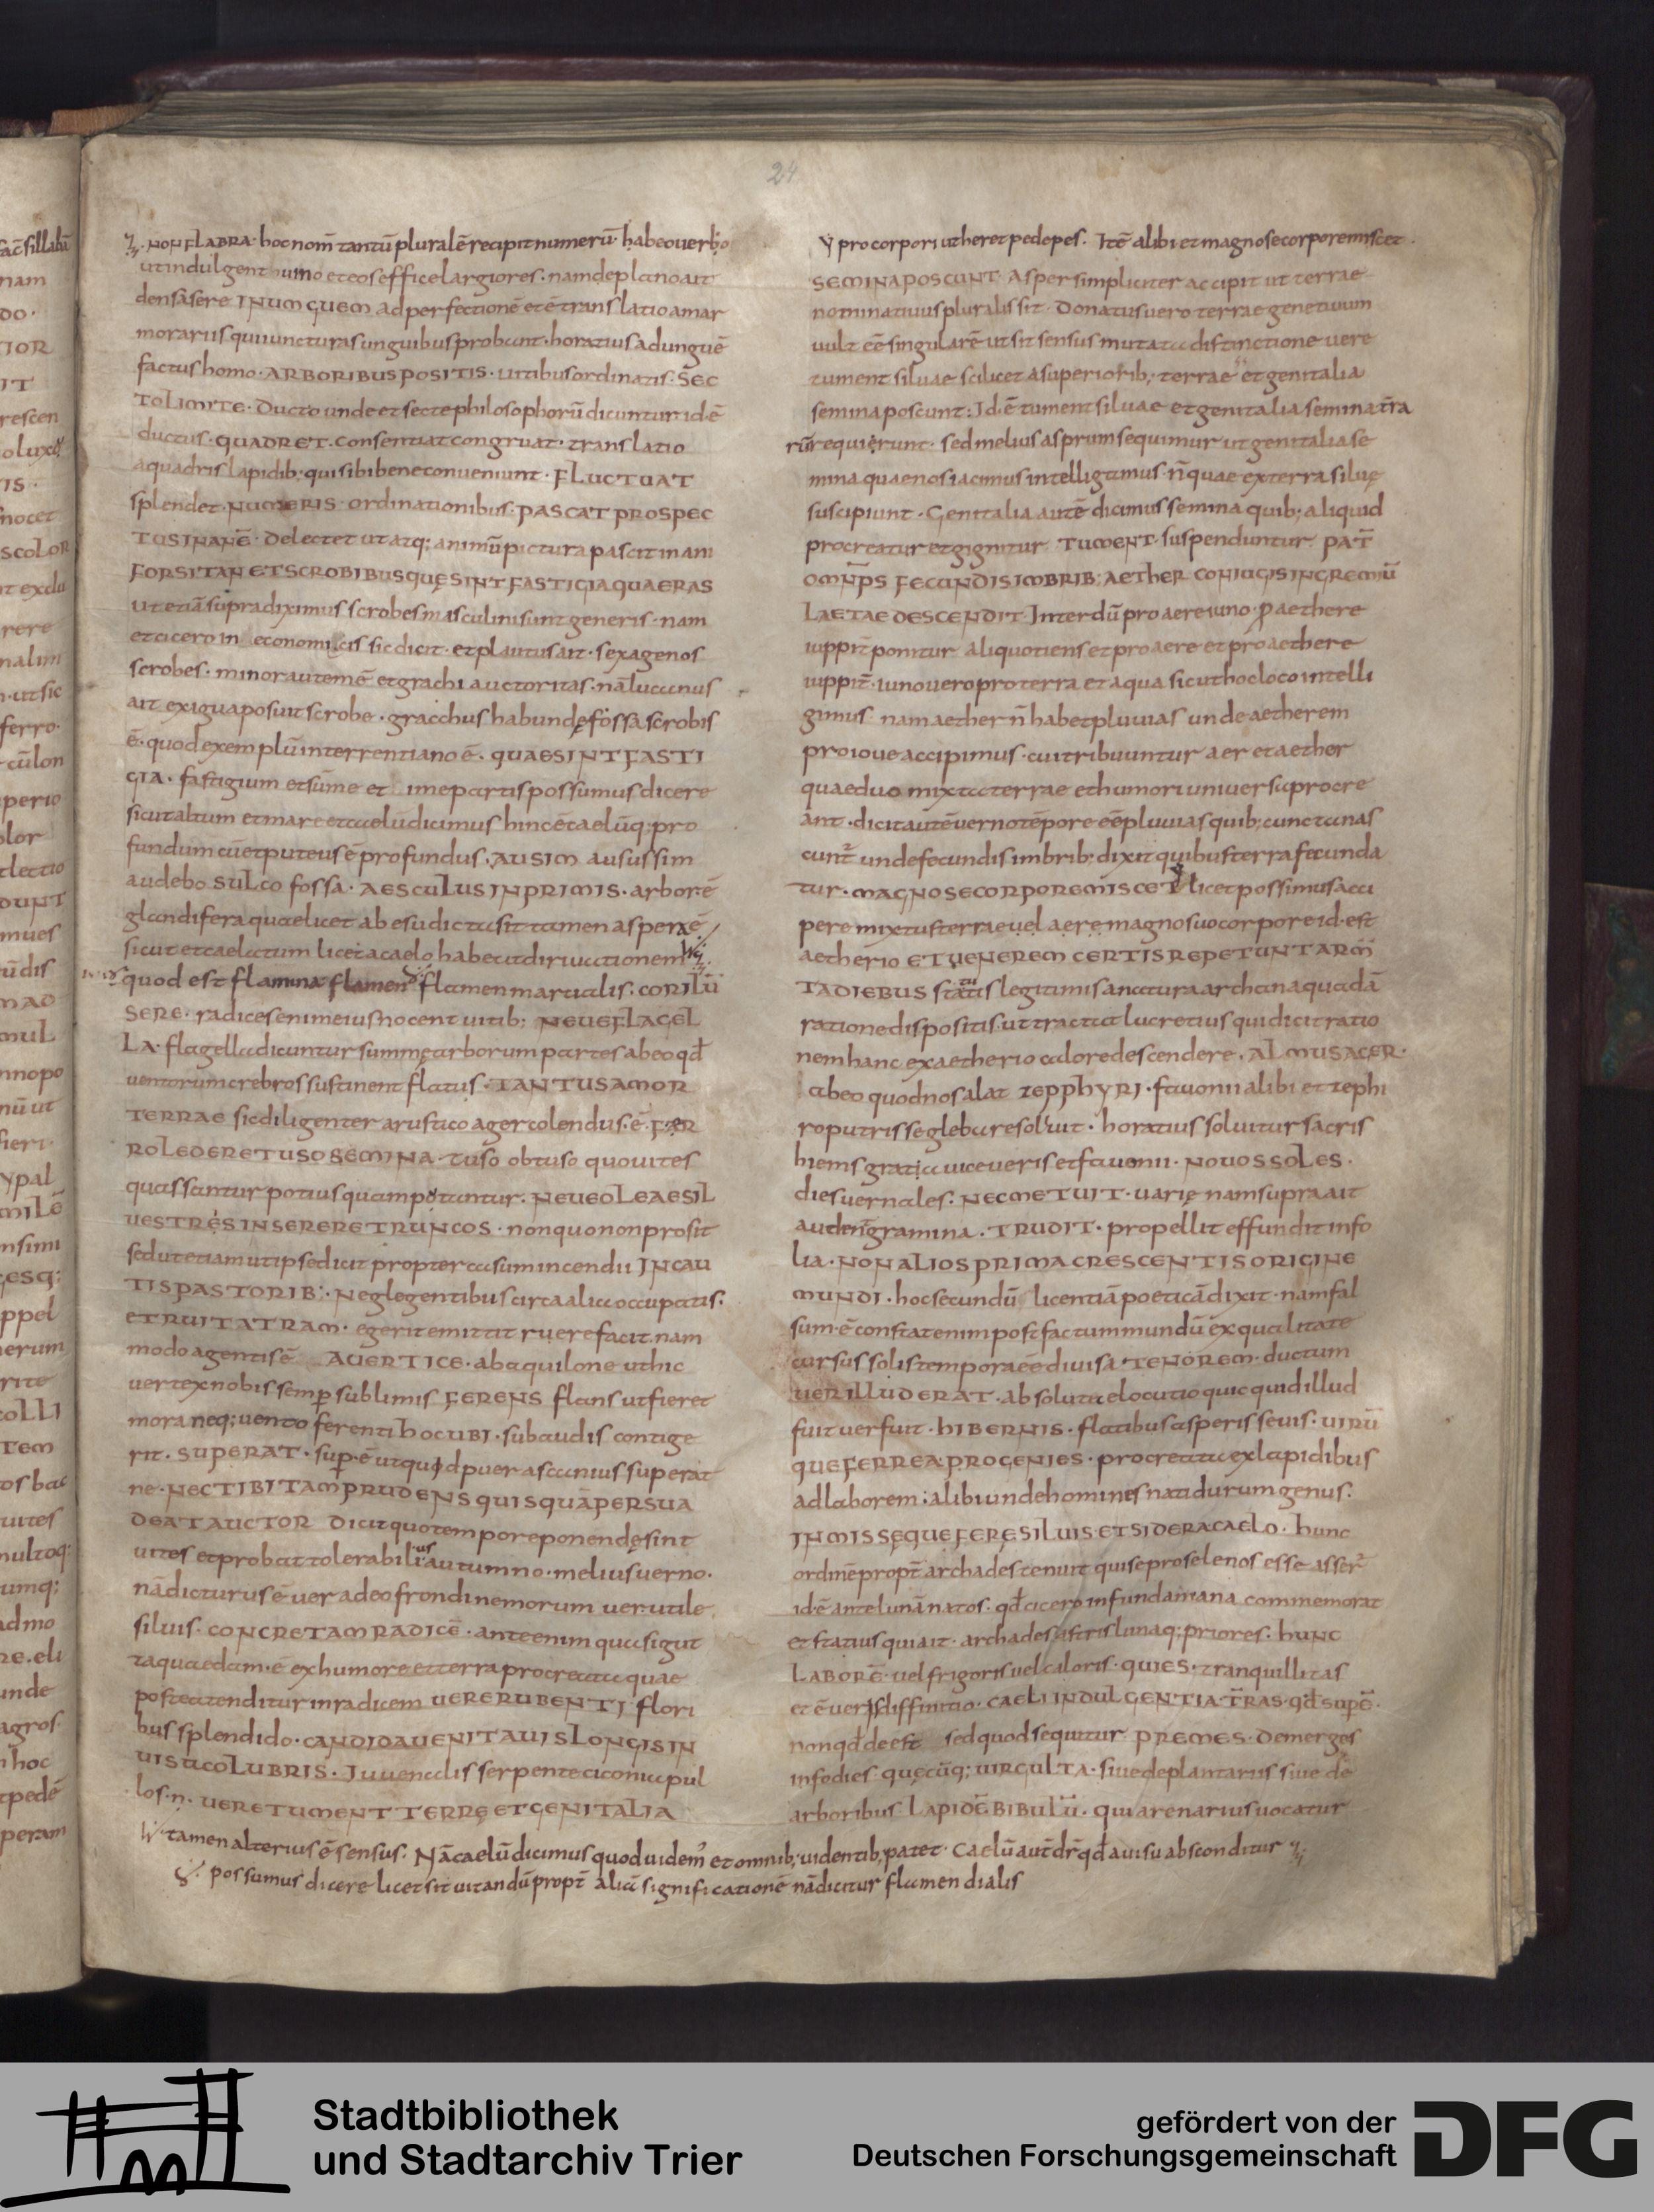 24
NON FLABRA · hoc nom̄ tantū pluralē recipit numerū · habeo verbo
ut indulgent humo et eos effice largiores · nam de plano ait
densa sere IN UMGUEM ad perfectionē et ē translatio a mar
morariis qui iuncturas unguibus probant · horatius ad unguē
factus homo · ARBORIBUS POSITIS · vitibus ordinatis · SEC
TO LIMITE · Ducto unde et secte philosophorū dicuntur id · ē
ductus · QUADRET · consentiat congruat · translatio
a quadris lapidib; qui sibi bene conveniunt · FLUCTUAT
splendet · NUMERIS ordinationibus · PASCAT PROSPEC
TUS INANĒ · Delectet ut atq; animū pictura pascit inani
FORSITAN ET SCROBIBUS QUĘ SINT FASTIGIA QUAERAS
ut etiā supra diximus scrobes masculini sunt generis · nam
et cicero in economicis sic dicit · et plautus ait · sexagenos
scrobes · minor autem ē et grachi auctoritas · nā lucanus
ait exigua posuit scrobe · gracchus habundę fossa scrobis
ē · quod exemplū interrentiano ē · QUAE SINT FASTI
GIA · fastigium et sūme et imę partis possumus dicere
sicut altum et mare et caelū dicimus hinc ē caelūq; pro
fundum cū et puteus ē profundus · AUSIM ausus sim
audebo SULCO fossa · AESCULUS IN PRIMIS · arbor · ē
glandifera quae licet ab esu dicta sit tamen aspera ē
sicut et caelatum licet a caelo habeat dirivationem
quod est flamina flamen flamen martialis · CORILŪ
SERE · radices enim eius nocent vitib; NEVE FLAGEL
LA · flagella dicuntur summę arborum partes ab eo qđ
ventorum crebros sustinent flatus · TANTUS AMOR
TERRAE sic diligenter a rustico ager colendus · ē · FER
RO LEDERE TUSO SEMINA · tuso obtuso quo vites
quassantur potius quam putantur · NEVE OLEAE SIL
VESTRES INSERERE TRUNCOS · non quo non prosit
sed ut etiam ut ipse dicit propter casum incendii INCAU
TIS PASTORIB; · Neglegentibus circa alia occupatis ·
ET RUIT ATRAM · egerit emittit ruere facit nam
modo agentis ē A VERTICE · ab aquilone ut hic
vertex nobis semp sublimis FERENS flans ut fieret
mora neq; vento ferenti hoc UBI · subaudis contige
rit · SUPERAT · sup · ē ut quid puer ascanius superat
ne · NEC TIBI TAM PRUDENS QUISQUĀ PERSUA
DEAT AUCTOR Dicit quo tempore ponendę sint
vites et probat tolerabilius autumno · melius verno ·
nā dicturus ē ver adeo frondi nemorum ver utile
silvis · CONCRETAM RADICĒ · ante enim quasi gut
ta quaedam · ē ex humore et terra procreata quae
postea tenditur in radicem VERE RUBENTI flori
bus splendido · CANDIDA VENIT AVIS LONGIS IN
VISA COLUBRIS · Juvenalis serpente ciconia pul
los · n · VERE TUMENT TERRĘ ET GENITALIA
tamen alterius ē sensus · Nā caelū dicimus quod videm; et omnib; videntib; patet · Caelū aut̄ dr̄ qđ a visu absconditur
possumus dicere licet sit vitandū propt̄ aliā significationē nā dicitur flamen dialis
pro corpori ut heret pede pes · Itē alibi et magno se corpore miscet ·
SEMINA POSCUNT Asper simpliciter accipit ut terrae
nominativus pluralis sit · Donatus vero terrae genetivum
vult eē singularē ut sit sensus mutata distinctione vere
tument silvae scilicet a superiorib; · terrae et genitalia
semina poscunt : Id · ē tument silvae et genitalia semina tr̄a
rū requirunt · sed melius asprum sequimur ut genitalia se
mina quae nos iacimus intelligimus · n̄ quae ex terra silvę
suscipiunt · Genitalia autē dicimus semina quib; aliquid
procreatur et gignitur TUMENT · suspenduntur PAT̄
OMN̄PS FECUNDIS IMBRIB; AETHER CONIUGIS IN GREMIŪ
LAETAE DESCENDIT Interdū pro aere iuno · p aethere
iuppit̄ ponitur aliquotiens et pro aere et pro aethere
iuppit̄ · iuno vero pro terra et aqua sicut hoc loco intelli
gimus nam aether n̄ habet pluvias unde aetherem
pro iove accipimus · cui tribuuntur aer et aether
quae duo mixta terrae et humori universa procre
ant · dicit autē verno tēpore eē pluvias quib; cuncta nas
cunt̄ unde fecundis imbrib; dixit quibus terra fecunda
tur · MAGNO SE CORPORE MISCET licet possimus acci
pere mixtus terrae vel aere magno suo corpore id · est
aetherio ET VENEREM CERTIS REPETUNT ARM̄
TA DIEBUS statutis legitimis a natura archana quadā
ratione dispositis · ut tractat lucretius qui dicit ratio
nem hanc ex aetherio calore descendere · ALMUS AGER ·
ab eo quod nos alat ZEPPHYRI · favonii alibi et zephi
ro putris se gleba resolvit · horatius solvitur sacris
hiems grata vice veris et favonii · NOVOS SOLES ·
dies vernales : NEC METUIT · varię nam supra ait
audent gramina · TRUDIT · propellit effundit in fo
lia · NON ALIOS PRIMA CRESCENTIS ORIGINE
MUNDI · hoc secundū licentiā poeticā dixit · nam fal
sum · ē constat enim post factum mundū ex qualitate
cursus solis tempora eē divisa TENOREM · ductum
VER ILLUD ERAT · absoluta elocutio quicquid illud
fuit ver fuit · HIBERNIS · flatibus asperis sevis · VIRŪ
QUE FERREA PROGENIES · procreata ex lapidibus
ad laborem : alibi unde homines nati durum genus ·
INMISSĘQUE FERE SILVIS ET SIDERA CAELO · hunc
ordinē propt̄ archades tenuit qui se proselenos esse asser̄
id · ē ante lunā natos · qđ cicero in fundaniana commemorat
et statius qui ait · archades astris lunaq; priores · HUNC
LABORĒ · vel frigoris vel caloris · QUIES · tranquillitas
et ē veris diffinitio · CAELI INDULGENTIA TRAS · qđ supē ·
non qđ deest sed quod sequitur PREMES · Demerges
infodies quęcūq; VIRGULTA · sive de plantariis sive de
arboribus LAPIDĒ BIBULŪ · qui arenarius vocatur
Stadtbibliothek
und Stadtarchiv Trier
gefördert von der
Deutschen Forschungsgemeinschaft
DFG